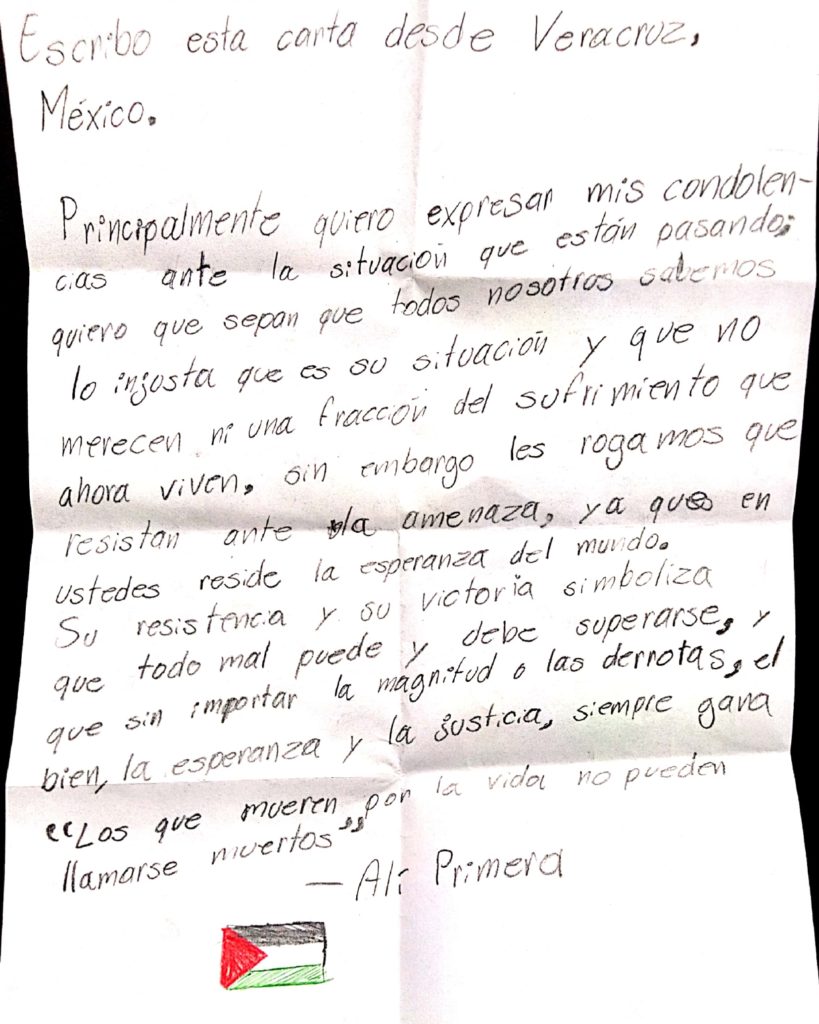 Escribo esta carta desde Veracruz,
México.
Principalmente quiero expresar mis condolen-
cias ante la situación que están pasando;
quiero que sepan que todos nosotros sabemos
lo injusta que es su situación y que no
merecen ni una fracción del sufrimiento que
ahora viven, sin embargo les rogamos que
resistan ante la amenaza, ya que en
ustedes reside la esperanza del mundo.
Su resistencia y su victoria simboliza
que todo mal puede y debe superarse, y
que sin importar la magnitud o las derrotas, el
bien, la esperanza y la justicia, siempre gana
“Los que mueren por la vida no pueden
llamarse muertos”
— Alí Primera